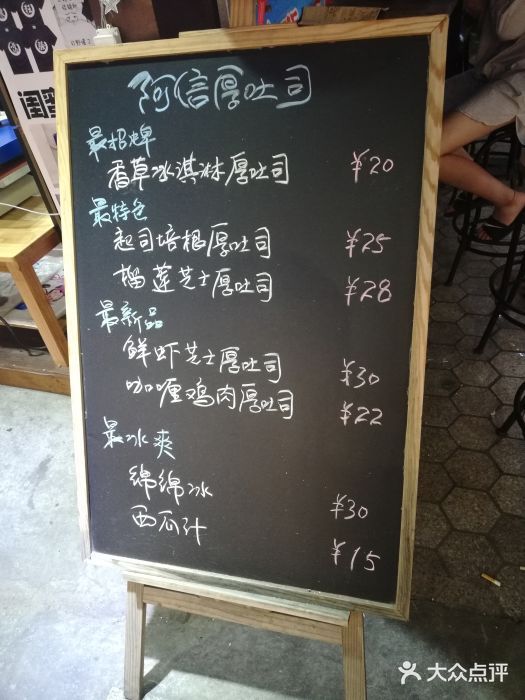 阿信厚吐司
最招牌
香草冰淇淋厚吐司 ¥20
最特色
起司培根厚吐司 ¥25
榴莲芝士厚吐司 ¥28
最新品
鲜虾芝士厚吐司 ¥30
咖喱鸡肉厚吐司 ¥22
最冰爽
绵绵冰 ¥30
西瓜汁 ¥15
大众点评